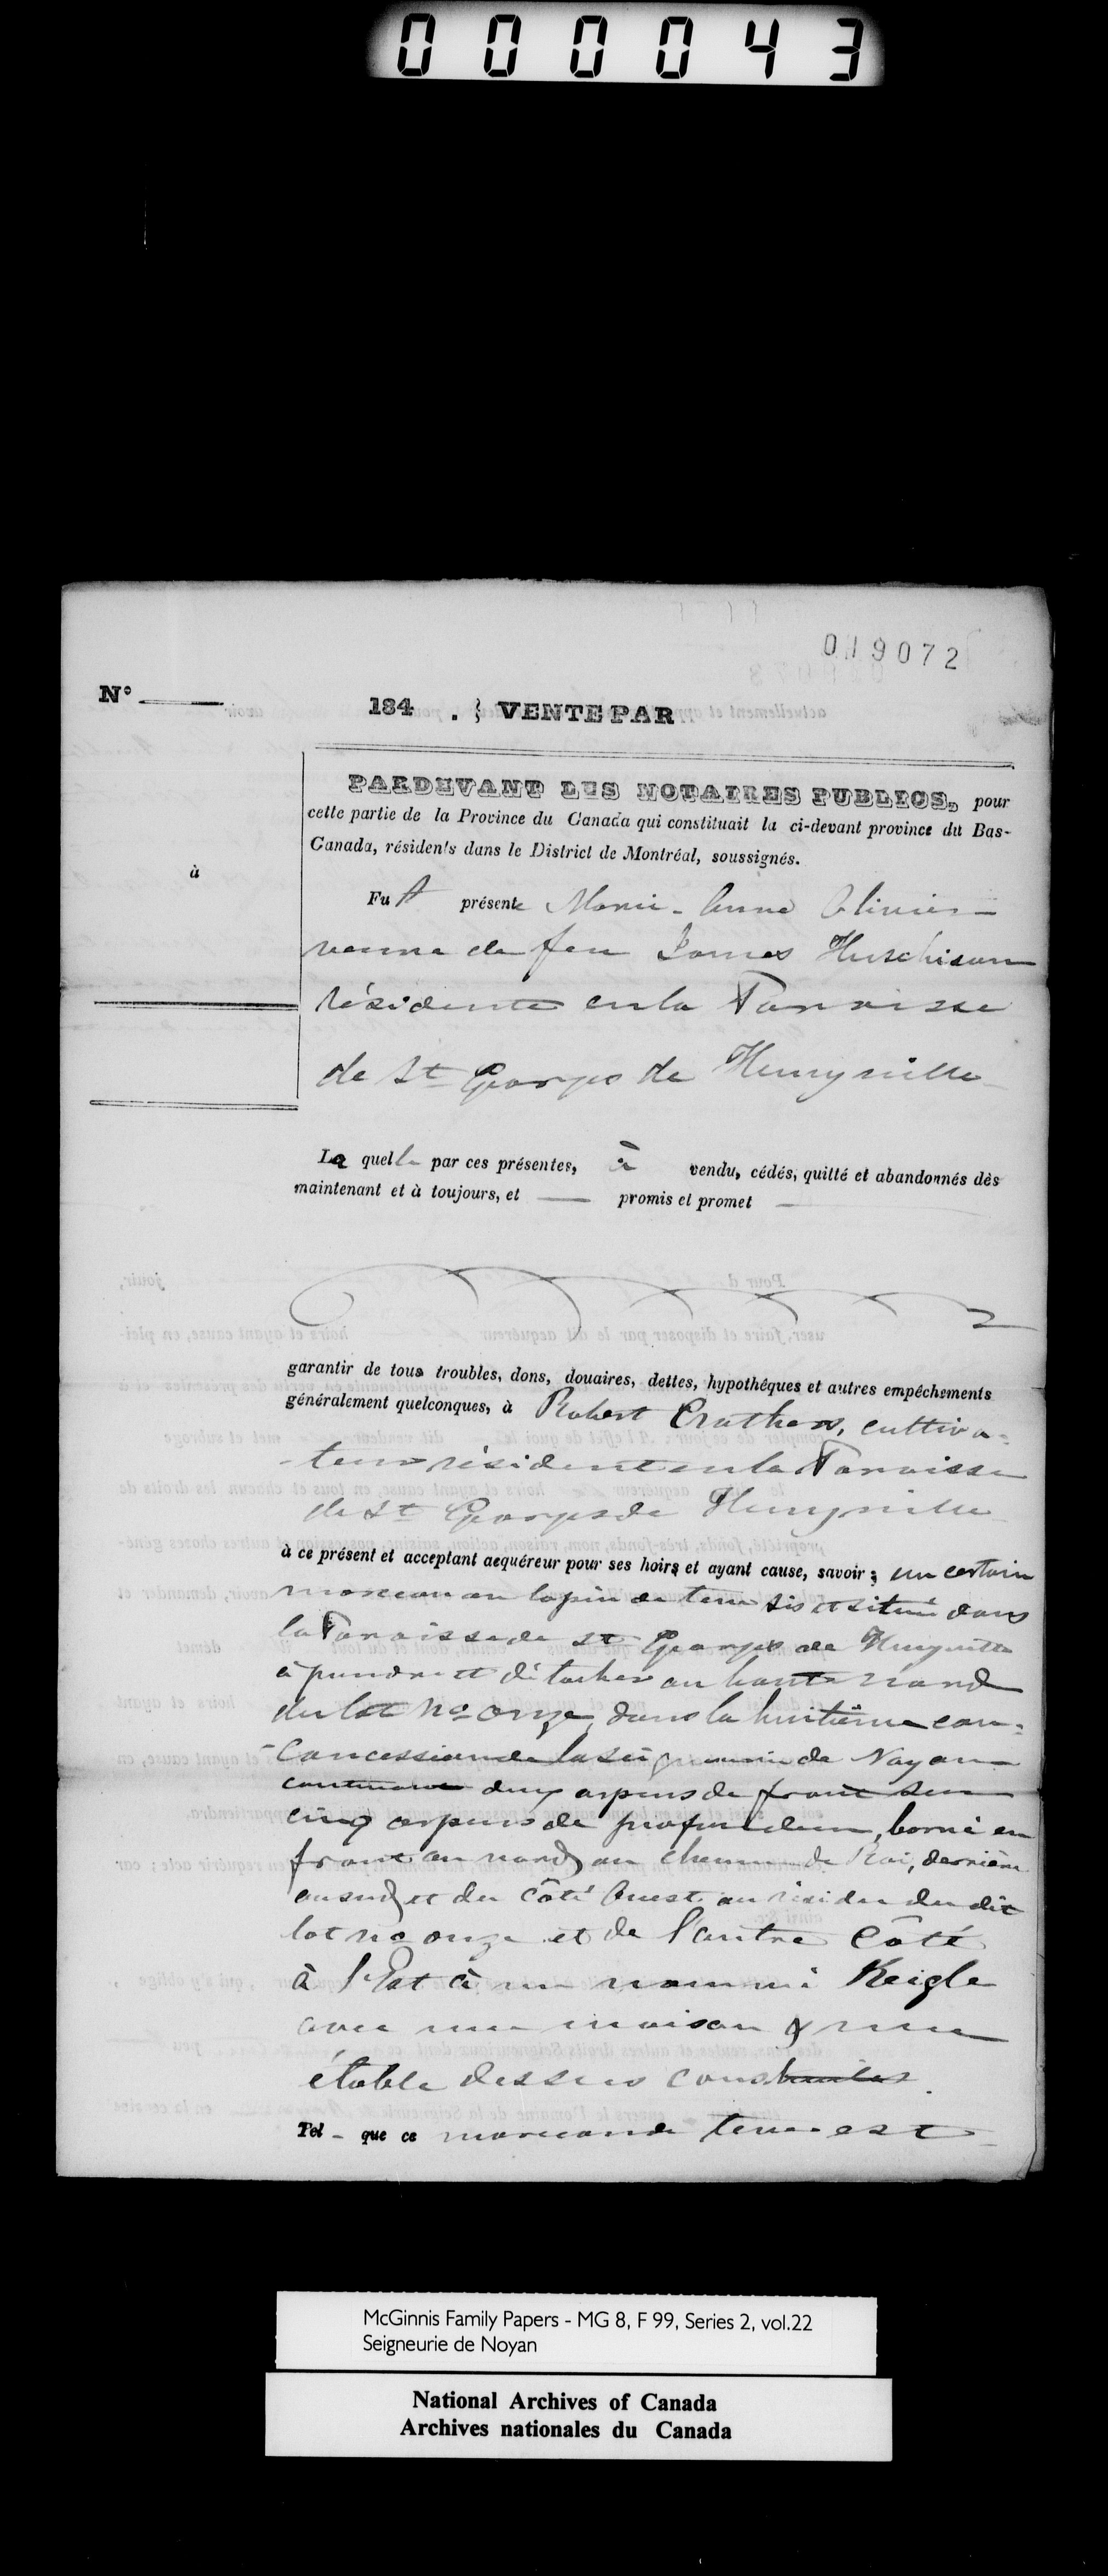 000043
019072
N°
184 . } VENTE PAR
PARDEVANT LES NOTAIRES PUBLICS, pour
cette partie de la Province du Canada qui constituait la ci-devant province du Bas-
Canada, résidents dans le District de Montréal, soussignés.
à
Fut présente Marie-Anne Olivier
veuve de feu James Hutchison
résidente en la Paroisse
de St Georges de Henryville
La quelle par ces présentes, a vendu, cédés, quitté et abandonnés dès
maintenant et à toujours, et promis et promet
garantir de tous troubles, dons, douaires, dettes, hypothéques et autres empéchements
généralement quelconques, à Robert Crothers, cultiva-
-teur résident en la Paroisse
de St Georges de Henryville
à ce présent et acceptant aequéreur pour ses hoirs et ayant cause, savoir; un certain
morceau ou lopin de terre sis et situé dans
la Paroisse de St Georges de Henryville
à prendre et détacher au bout nord
du lot No onze, dans la huitième con-
-Concession de la Seigneurie de Noyan
contenant deux arpens de front sur
cinq arpens de profondeur, borné en
front au nord au chemin de Roi, derrière
au sud et du côté Ouest au résidu du dit
lot no onze et de l'autre Côté
à l'Est à un nommé Keigle
avec une maison & une
étable dessus construites.
Tel - que ce morceau de terre est
McGinnis Family Papers - MG 8, F 99, Series 2, vol.22
Seigneurie de Noyan
National Archives of Canada
Archives nationales du Canada